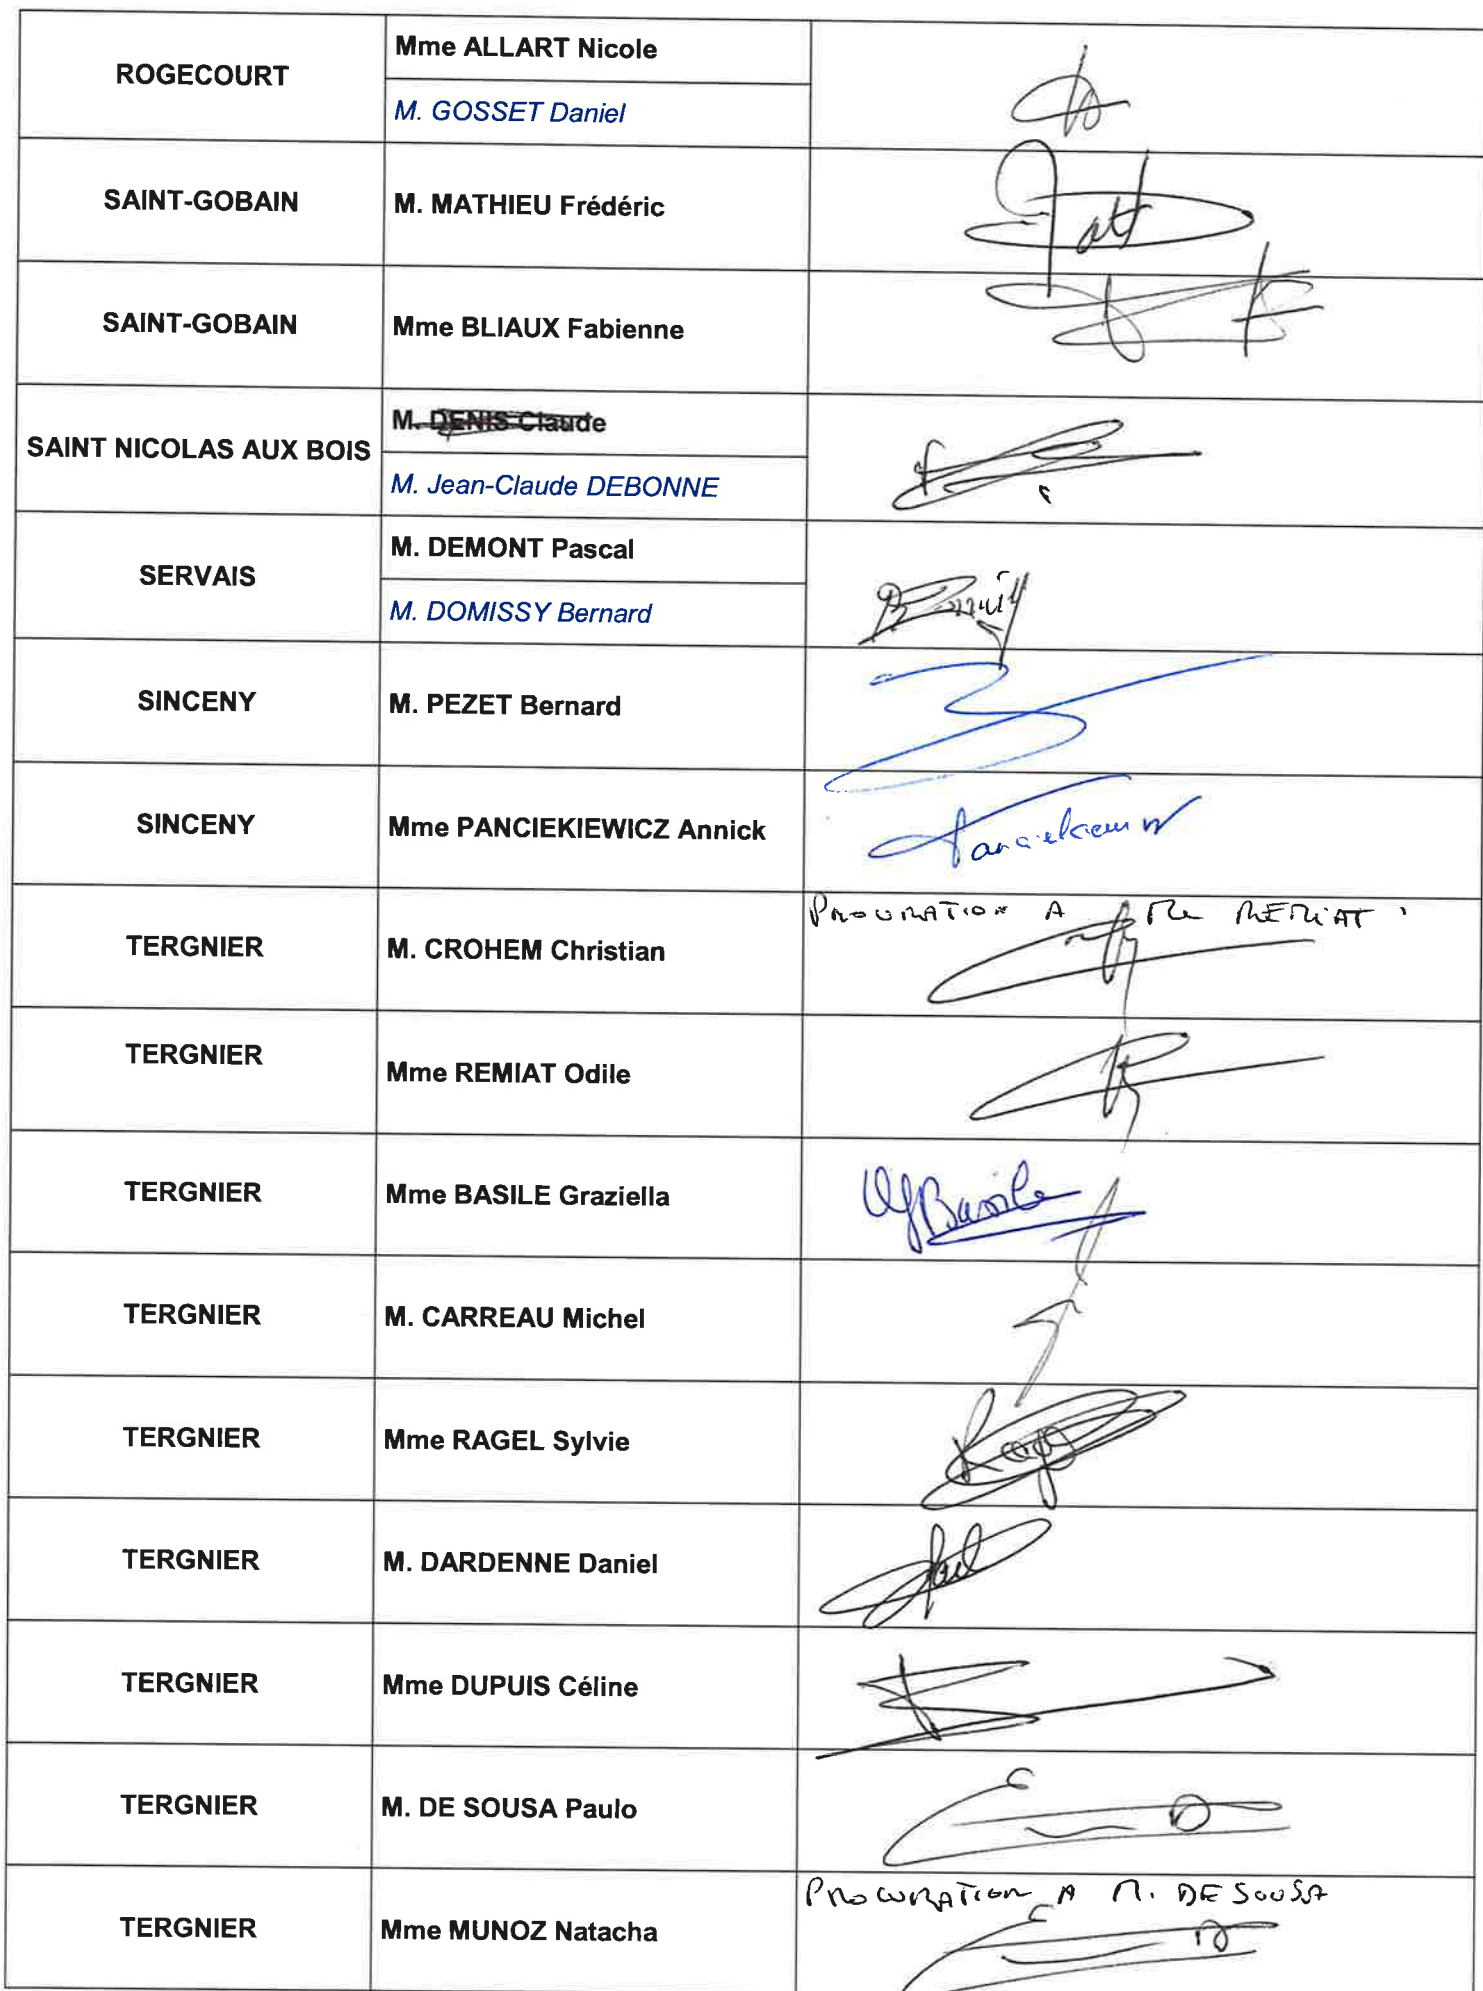 ROGECOURT
Mme ALLART Nicole
M. GOSSET Daniel
SAINT-GOBAIN
M. MATHIEU Frédéric
SAINT-GOBAIN
Mme BLIAUX Fabienne
SAINT NICOLAS AUX BOIS
M. DENIS Claude
M. Jean-Claude DEBONNE
SERVAIS
M. DEMONT Pascal
M. DOMISSY Bernard
SINCENY
M. PEZET Bernard
SINCENY
Mme PANCIEKIEWICZ Annick
TERGNIER
M. CROHEM Christian
PROCURATION A Me REMIAT
TERGNIER
Mme REMIAT Odile
TERGNIER
Mme BASILE Graziella
GBasile
TERGNIER
M. CARREAU Michel
TERGNIER
Mme RAGEL Sylvie
TERGNIER
M. DARDENNE Daniel
TERGNIER
Mme DUPUIS Céline
TERGNIER
M. DE SOUSA Paulo
TERGNIER
Mme MUNOZ Natacha
PROCURATION A M. DE SOUSA